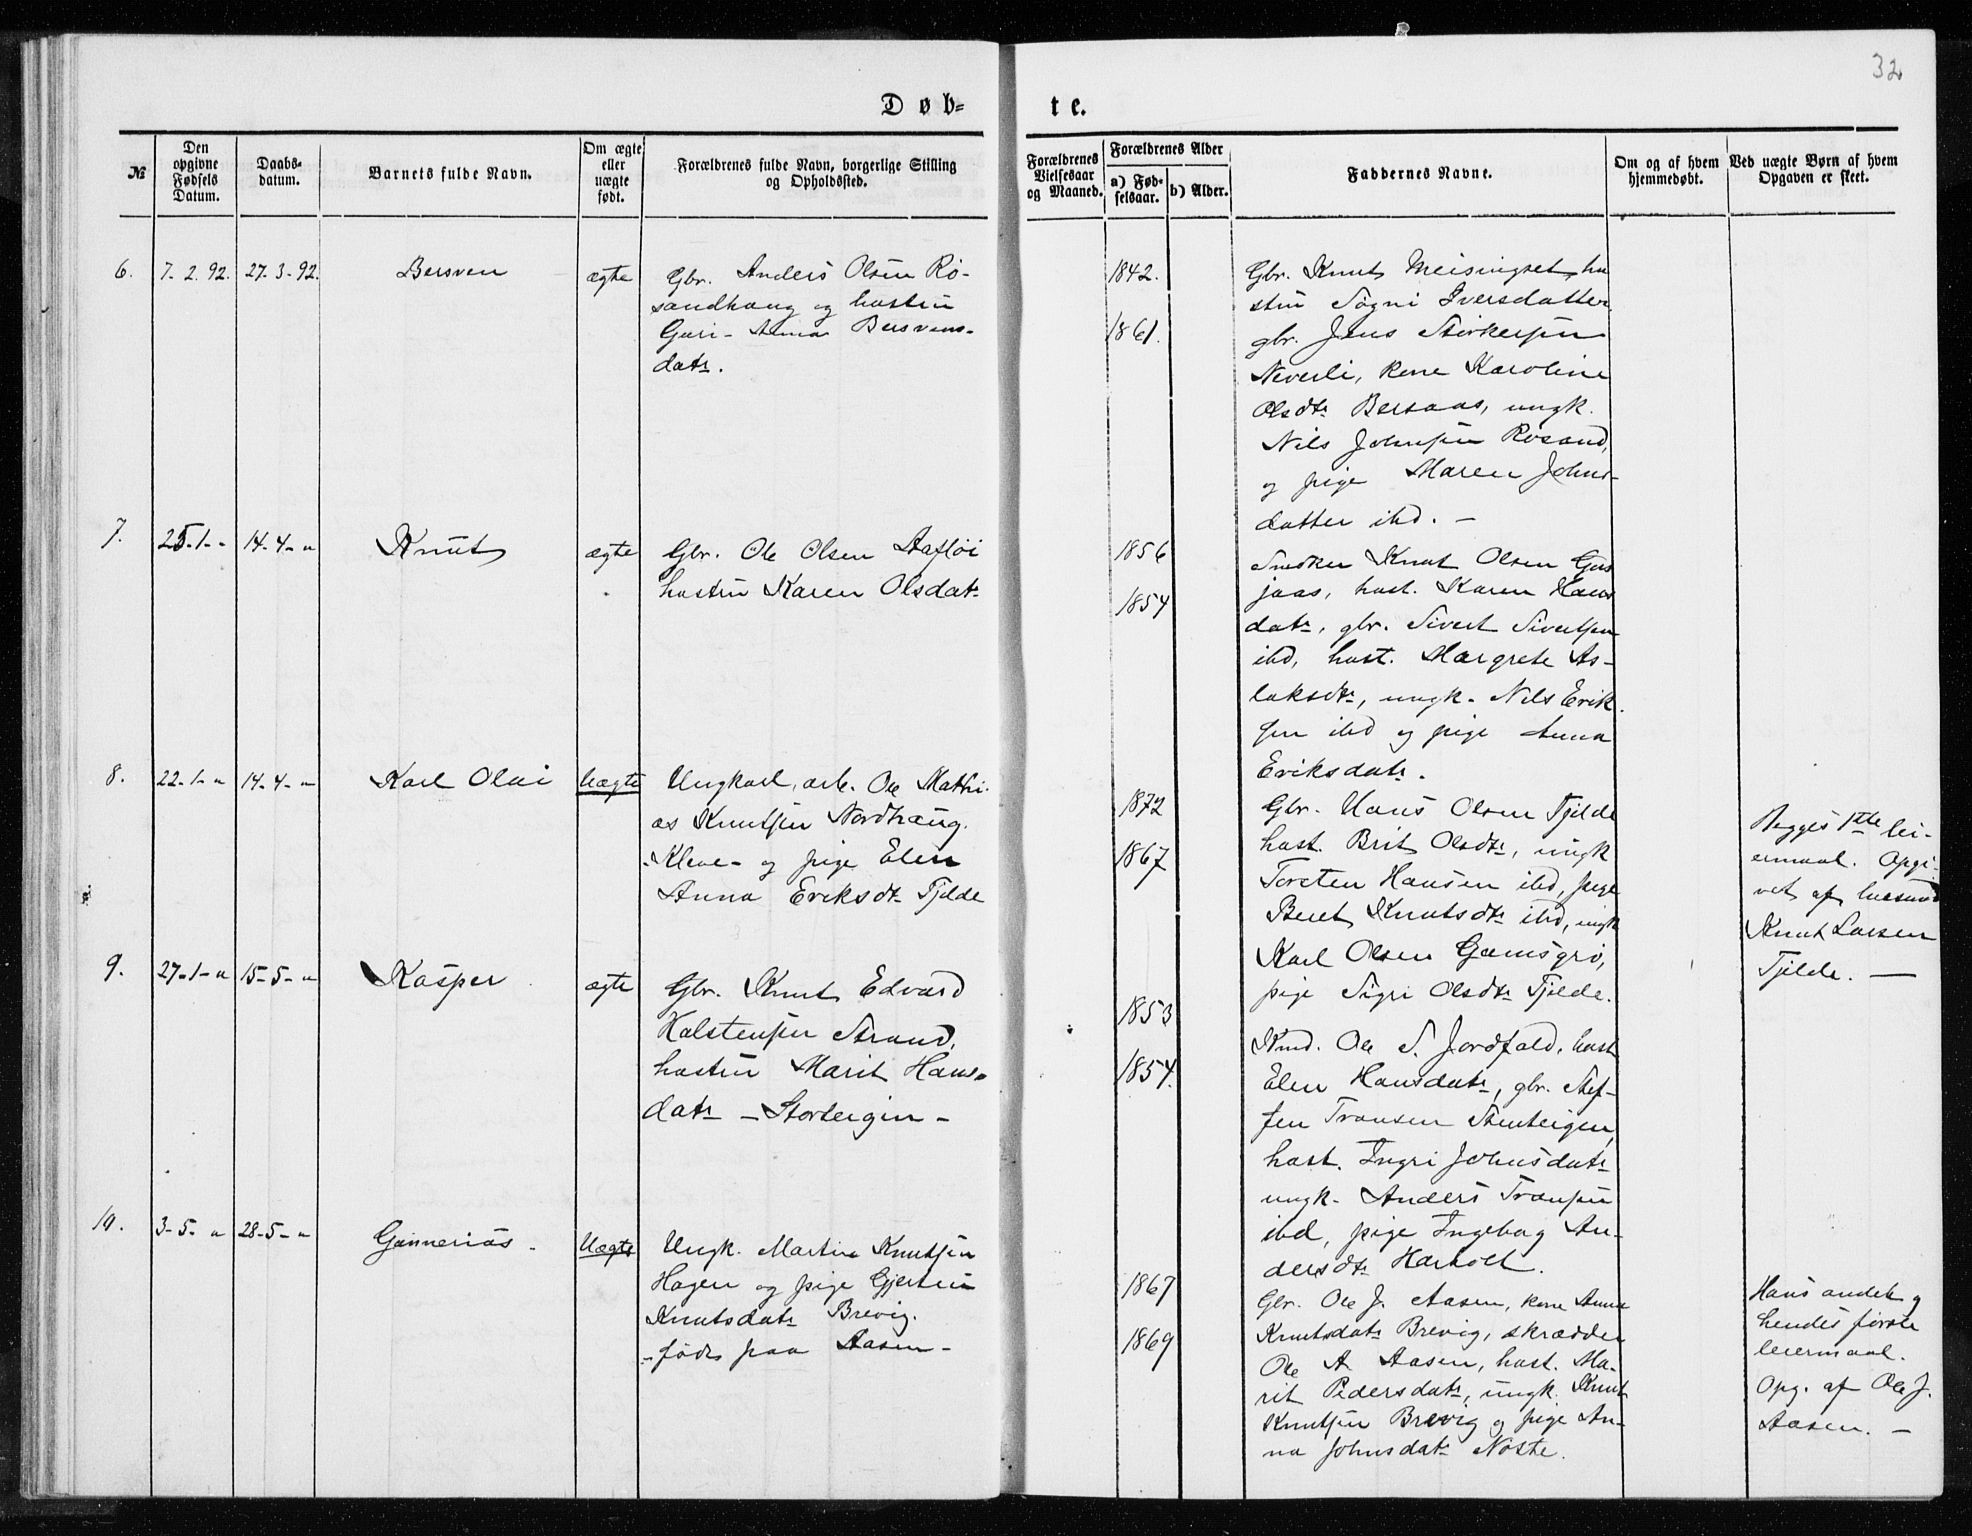 32
Døb-
te.
№
Den
opgivne
Fødsels
Datum.
Daabs-
datum.
Barnets fulde Navn.
Om ægte
eller
uægte
født.
Forældrenes fulde Navn, borgerlige Stilling
og Opholdssted.
Forældrenes
Vielsesaar
og Maaned.
Forældrenes Alder
a) Fød-
selsaar.
b) Alder.
Faddernes Navne.
Om og af hvem
hjemmedøbt.
Ved uægte Børn af hvem
Opgaven er skeet.
6.
7-2.92.
27-3-92.
Bersven
ægte
Gbr. Anders Olsen Rø-
sandhaug og hustru
Guri-Anna Bersvens-
datr.
1842.
1861.
Gbr. Knut Meisingset, hu
stru Søgni Iversdatter
gbr. Jens Størkersen
Neverli, kone Karoline
Olsdtr Bersaas, ungk.
Nils Johnsen Røsand,
og pige Maren Johns-
datter ibd. -
7.
25-1-"
14-4-"
Knut
ægte
Gbr. Ole Olsen Aafløi
hustru Karen Olsdatr
1856
1854
Snedker Knut Olsen Gas
jaas, hust. Karen Hans
datr, gbr. Sivert Sivertsen
ibd, hust. Margrete As-
laksdtr, ungk. Nils Erik
sen ibd og pige Anna
Eriksdatr.
8.
22-1-"
14-4-"
Karl Olai
Uægte
Ungkarl, arb. Ole Mathi-
as Knutsen Nordhaug.
-Kleve- og pige Elen
Anna Eriksdtr Tjelde
1872
1867
Gbr. Hans Olsen Tjelde
hust. Brit Olsdtr, ungk
Torsten Hansen ibd, pige
Beret Knutsdtr ibd, ungk
Karl Olsen Gamsgrø,
pige Sigri Olsdtr Tjelde.
Begges 1ste lei-
ermaal. Opgi-
vet af husmd
Knut Larsen
Tjelde. —
9.
27-1-"
15-5-"
Kasper
ægte
Gbr. Knut Edvard
Halstensen Strand,
hustru Marit Hans-
datr - Storteigen -
1853
1854.
Kmd. Ole S. Jordfald, hust
Elen Hansdatr, gbr. Stef-
fen Transen Stenteigen,
hust. Ingri Johnsdatr
ungk. Anders Transen
ibd, pige Ingebog An-
dersdtr Harholt.
10.
3-5-"
28-5-"
Gunnerius -
Uægte
Ungk. Martin Knutsen
Hagen og pige Gjertru
Knutsdatr Brevig.
-født paa Aasen-
1867
1869
Gbr. Ole J. Aasen, kone Anna
Knutsdatr Brevig, skrædder
Ole A. Aasen, hust. Ma-
rit Pedersdatr, ungk. Knut
Knutsen Brevig og pige An-
na Johnsdatr Nøste.
Hans andet og
hendes første
leiermaal.
Opg. af Ole J.
Aasen. —